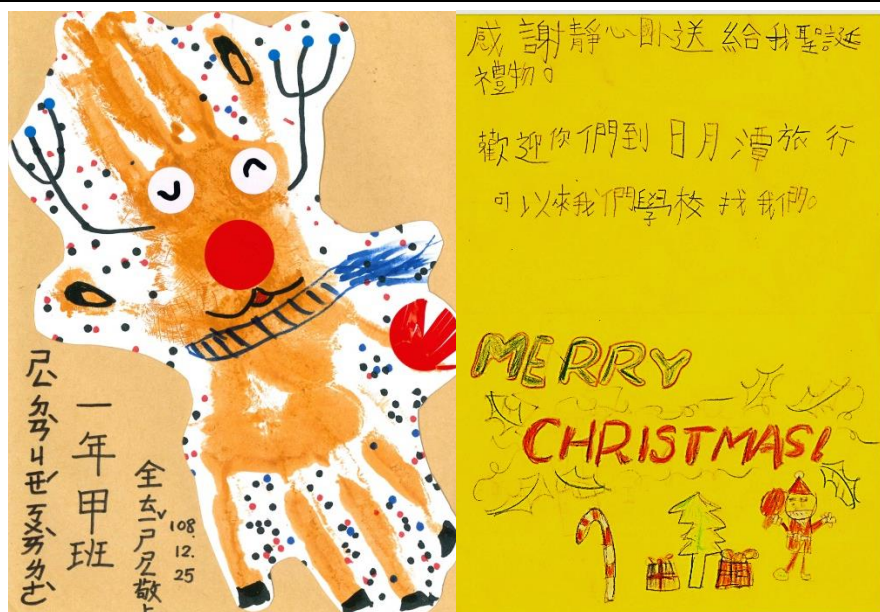 ㄕㄥˋㄉㄢˋㄐㄧㄝˊㄎㄨㄞˋㄌㄜˋ
一年甲班
全ㄊㄧˇㄕㄕㄥ敬上
108.
12.
25
感謝靜心國小送給我聖誕
禮物。
歡迎你們到日月潭旅行
可以來我們學校找我們。
MERRY
CHRISTMAS!